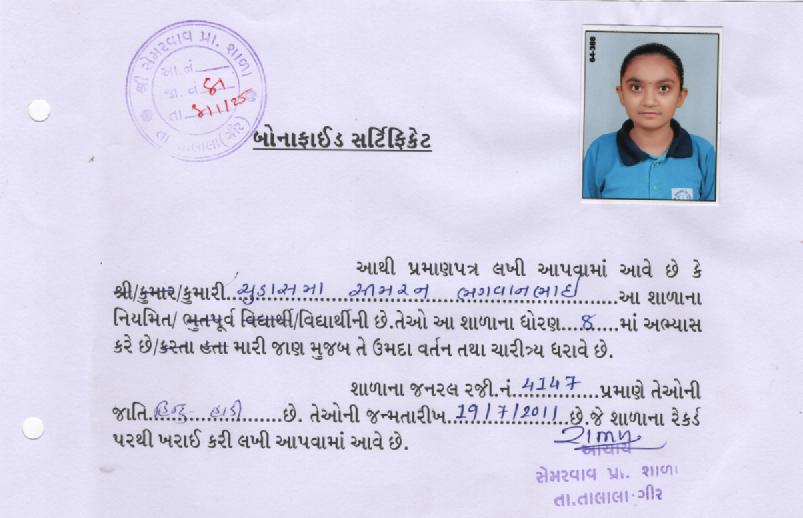 શ્રી સેમરવાવ પ્રા. શાળા
આ.નં.
જા. નં. 81
તા. 8/1/25
તા. તાલાલા(ગીર)
64-388
બોનાફાઈડ સર્ટિફિકેટ
આથી પ્રમાણપત્ર લખી આપવામાં આવે છે કે
શ્રી/કુમાર/કુમારી ચુડાસમા સીમરન ભગવાનભાઈ આ શાળાના
નિયમિત/ ભુતપૂર્વ વિદ્યાર્થી/વિદ્યાર્થીની છે.તેઓ આ શાળાના ધોરણ 8 માં અભ્યાસ
કરે છે/કરતા હતા મારી જાણ મુજબ તે ઉમદા વર્તન તથા ચારીત્ર્ય ધરાવે છે.
શાળાના જનરલ રજી.નં. 4147 પ્રમાણે તેઓની
જાતિ હિન્દુ - હાડી છે. તેઓની જન્મતારીખ 19/7/2011 છે.જે શાળાના રેકર્ડ
પરથી ખરાઈ કરી લખી આપવામાં આવે છે.
આચાર્ય
સેમરવાવ પ્રા. શાળા
તા.તાલાલા-ગીર